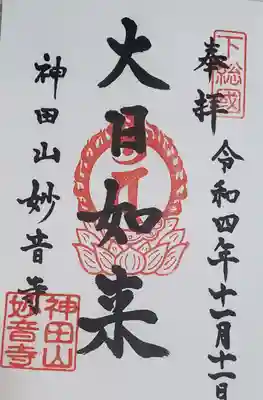 下総國
奉拝
令和四年十一月十一日
大日如来
神田山妙音寺
神田山
妙音寺